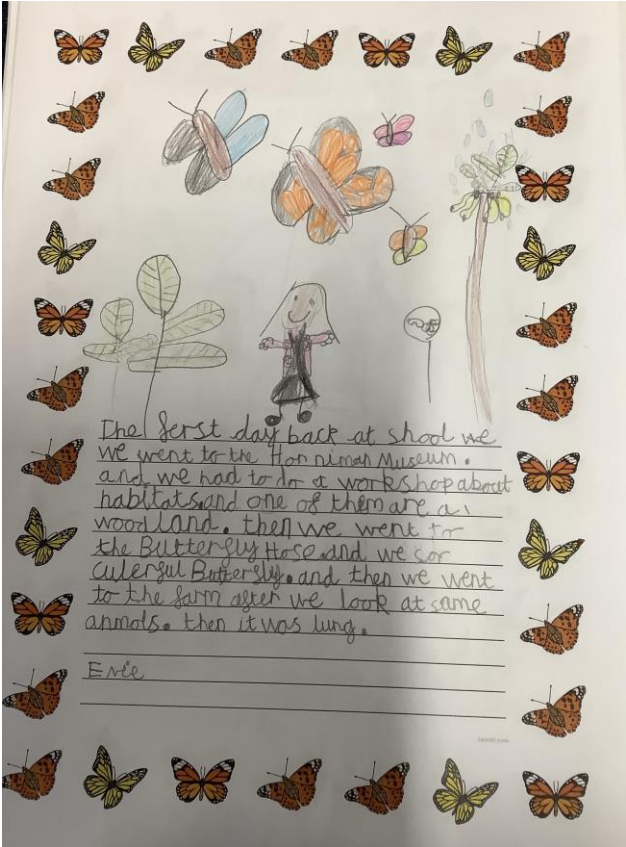 The ferst day back at shool we
we went to the Horniman Museum.
and we had to do a workshop about
habitats. and one of them are a
woodland. then we went to
the Butterfly Hose. and we sor
culerful Butterfly. and then we went
to the farm after we look at same
anmols. then it was lung.
Evie
twinkl.com